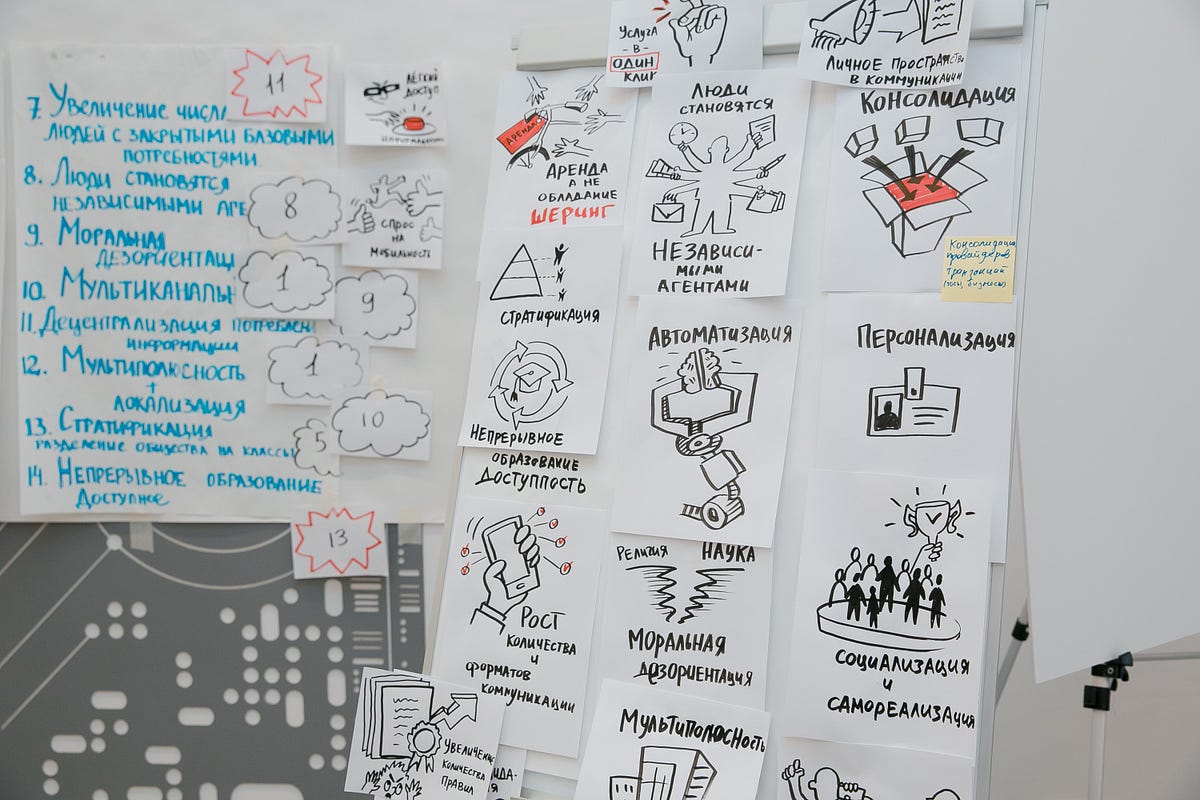 11
7. Увеличение
людей с закрытыми базовыми
потребностями.
8. Люди становятся
независимыми
8
9. Моральная
1
10.
9
11. Децентрализация
информации
1
12. Мультиполюсность
+
локализация
10
13. Стратификация
разделение общества на классы
5
14. Непрерывное образование
доступное
13
Лёгкий
доступ
Спрос
на
мобильность
Услуга
- в -
один
клик
Личное пространство
в коммуникации
Аренда
Аренда
а не
обладание
шеринг
Стратификация
Непрерывное
образование
доступность
Рост
количества
и
форматов
коммуникации
Увеличение
количества
правил
Люди
становятся
независи-
мыми
агентами
Автоматизация
Религия Наука
Моральная
дезориентация
Мультиполюсность
Консолидация
Консолидация
провайдеров
транзакций
Персонализация
Социализация
и
самореализация